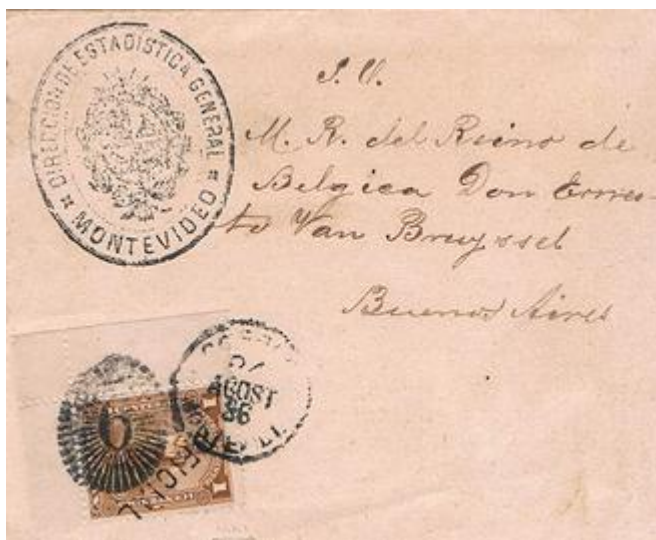 DIRECCION DE ESTADISTICA GENERAL
MONTEVIDEO
S. U.
M. R. del Reino de
Belgica Don Ernes-
to Van Bruyssel
Buenos Aires
AGOST
86
OFICIAL
1
1